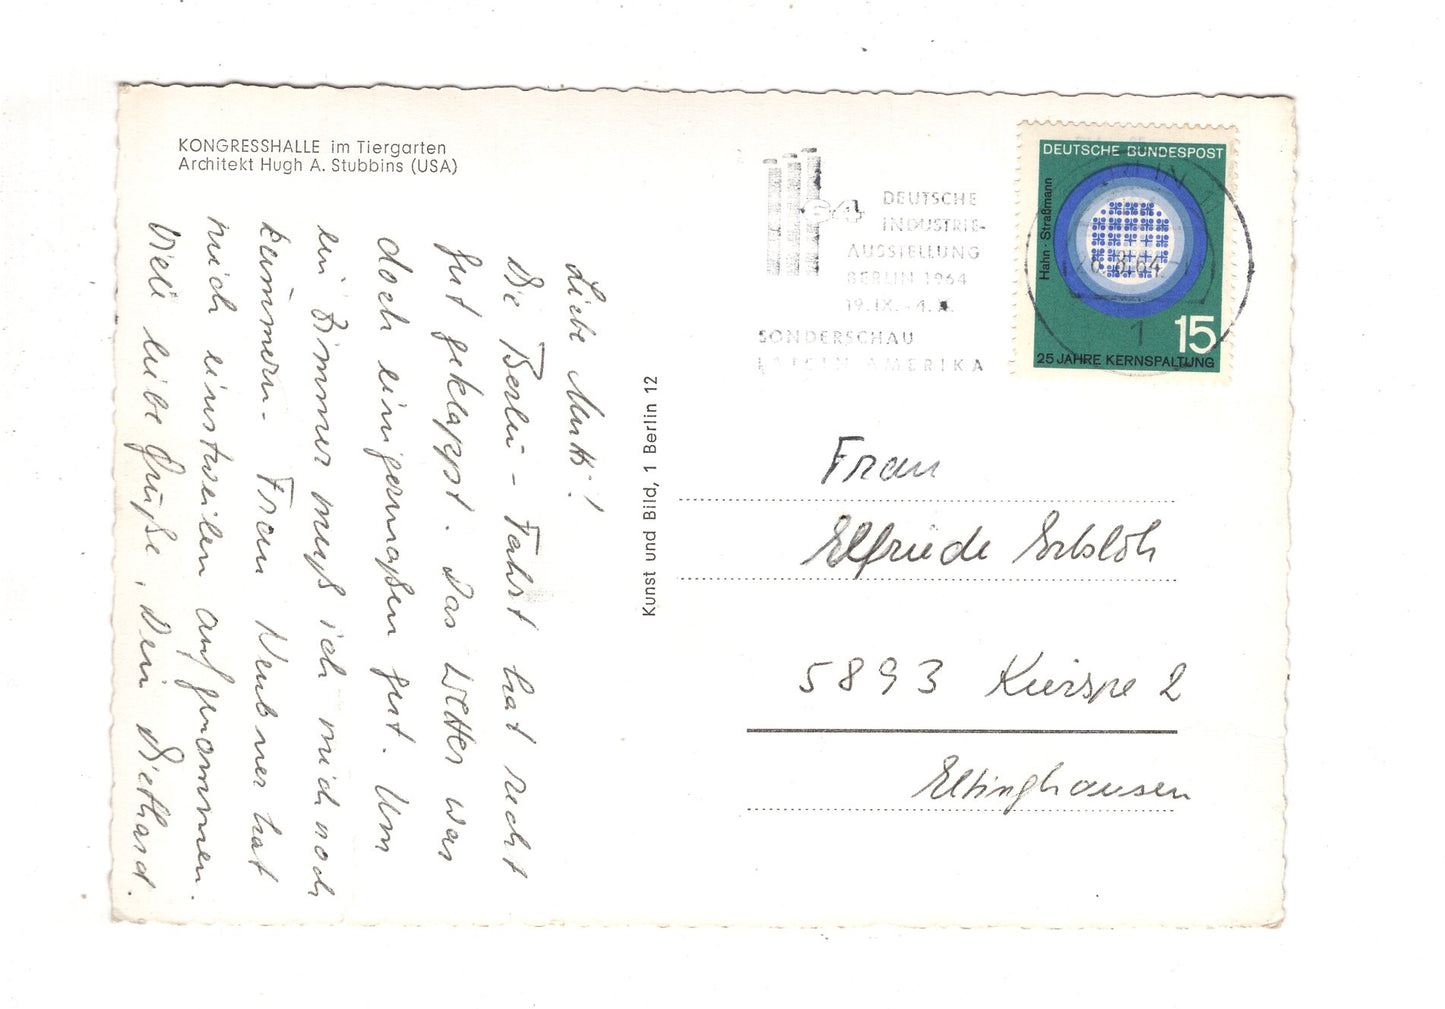 KONGRESSHALLE im Tiergarten
Architekt Hugh A. Stubbins (USA)
Liebe Mutti!
Die Berlin - Fahrt hat recht
gut geklappt. Das Wetter war
doch einigermaßen gut. Um
ein Zimmer muß ich mich noch
kümmern. Frau Neubner hat
mich einstweilen aufgenommen.
Viele liebe Grüße, Dein Diethard.
Kunst und Bild, 1 Berlin 12
64
DEUTSCHE
INDUSTRIE-
AUSSTELLUNG
BERLIN 1964
19. IX. - 4. X.
SONDERSCHAU
LATEIN AMERIKA
DEUTSCHE BUNDESPOST
Hahn · Straßmann
15
25 JAHRE KERNSPALTUNG
BERLIN
26.8.64
1
Frau
Elfriede Erbslöh
5893 Kierspe 2
Elbinghausen